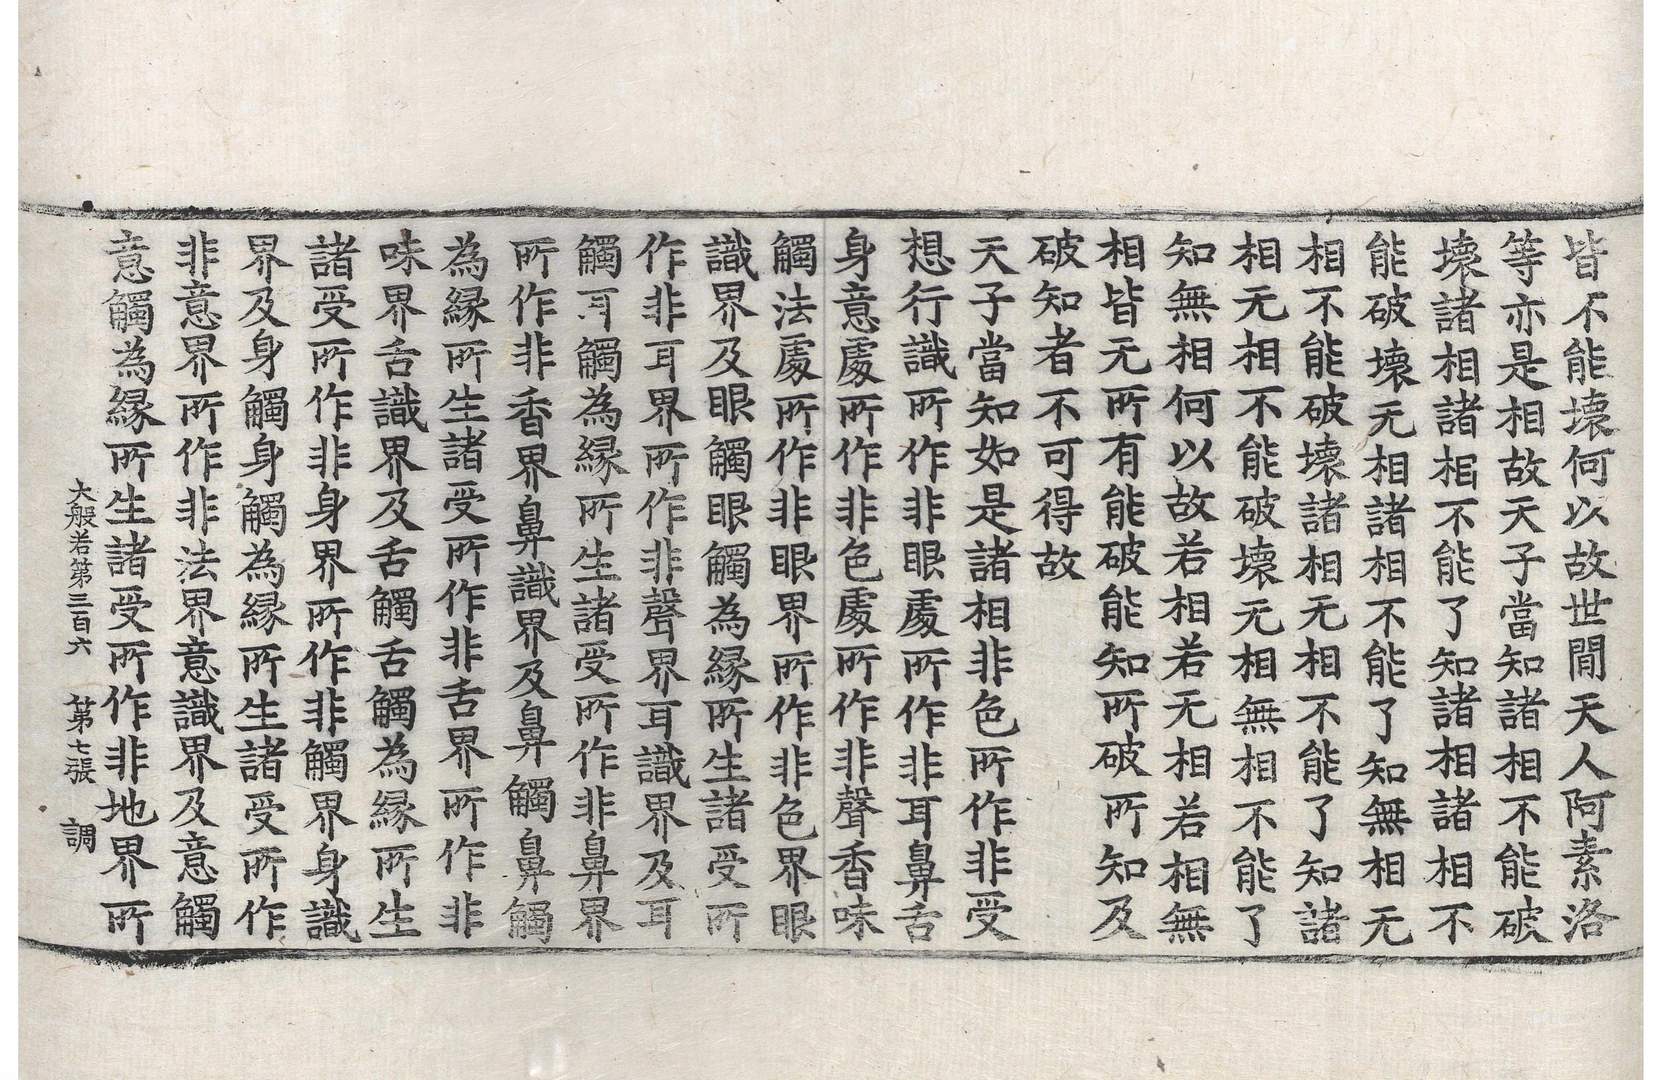 皆不能壞何以故世間天人阿素洛
等亦是相故天子當知諸相不能破
壞諸相諸相不能了知諸相諸相不
能破壞无相諸相不能了知無相无
相不能破壞諸相无相不能了知諸
相无相不能破壞无相無相不能了
知無相何以故若相若无相若相無
相皆无所有能破能知所破所知及
破知者不可得故
天子當知如是諸相非色所作非受
想行識所作非眼處所作非耳鼻舌
身意處所作非色處所作非聲香味
觸法處所作非眼界所作非色界眼
識界及眼觸眼觸為緣所生諸受所
作非耳界所作非聲界耳識界及耳
觸耳觸為緣所生諸受所作非鼻界
所作非香界鼻識界及鼻觸鼻觸
為緣所生諸受所作非舌界所作非
味界舌識界及舌觸舌觸為緣所生
諸受所作非身界所作非觸界身識
界及身觸身觸為緣所生諸受所作
非意界所作非法界意識界及意觸
意觸為緣所生諸受所作非地界所
大般若第三百六 第七張 調